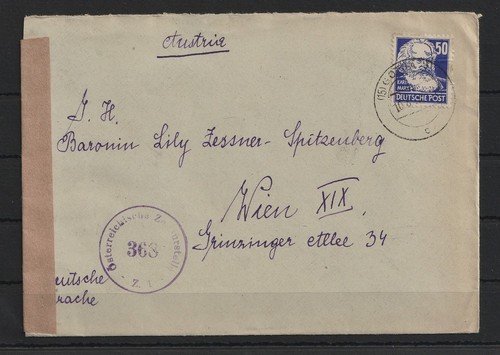 Austria
50
KARL
MARX
DEUTSCHE POST
(15)
c
S. H.
Baronin Lily Zessner-Spitzenberg
Wien XIX.
Grinzinger Allee 34
Österreichische
368
Z.
eutsche
rache